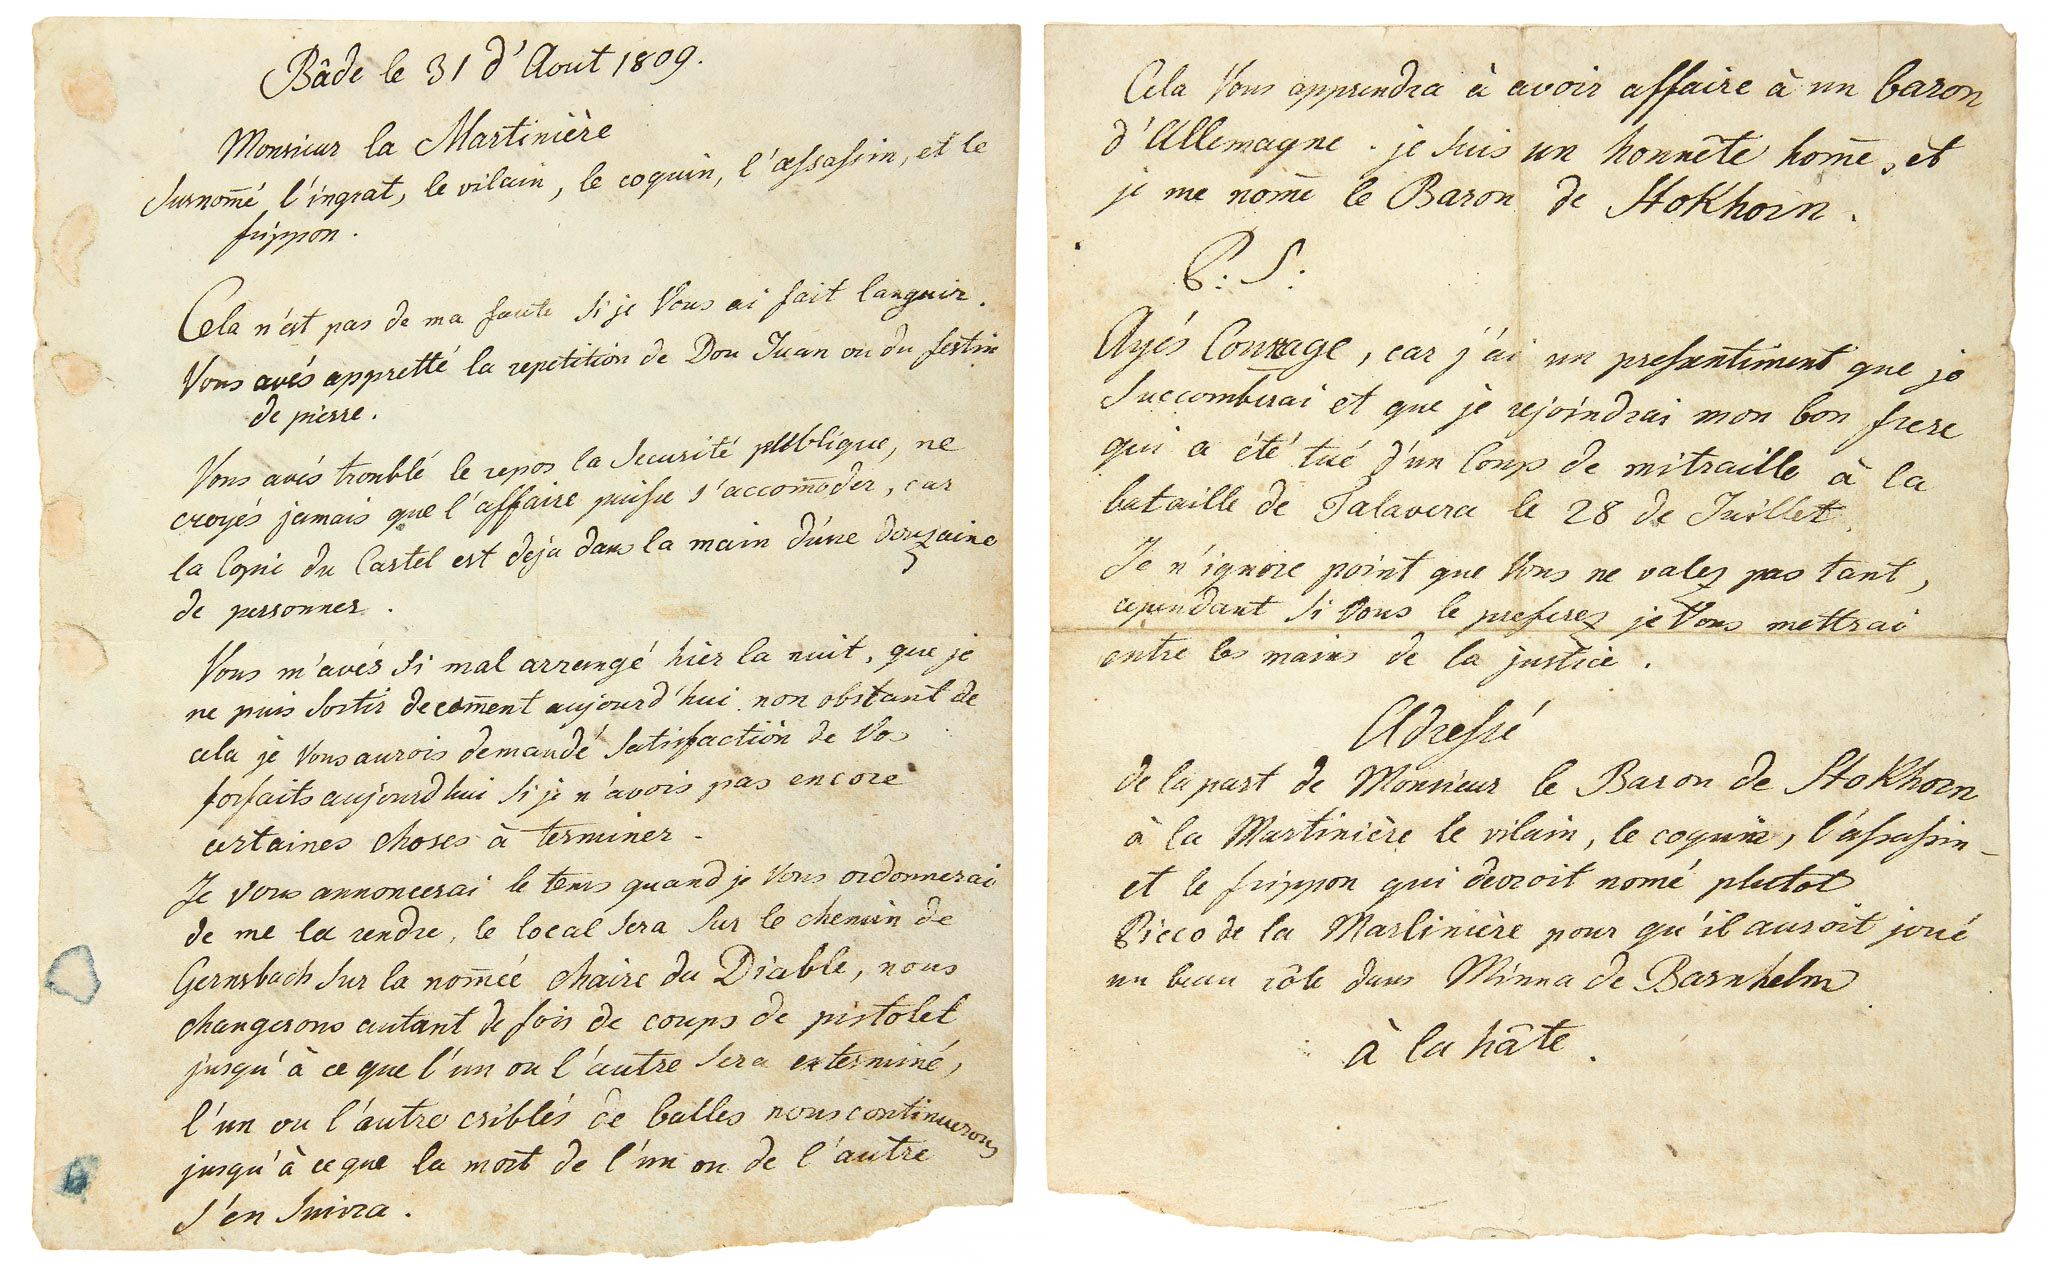 Bâde le 31 d'Aout 1809.
Monsieur la Martinière
surnom̄é l'ingrat, le vilain, le coquin, l'assassin, et le
frippon.
Cela n'est pas de ma faute si je Vous ai fait languir.
Vous avés appretté la repetition de Don Juan ou du festin
de pierre.
Vous avés troublé le repos la securité publique, ne
croyés jamais que l'affaire puisse s'accom̄oder, car
la Copie du Castel est deja dans la main d'une douzaine
de personnes.
Vous m'avés si mal arrangé hier la nuit, que je
ne puis sortir decem̄ent aujourd'hui non obstant de
cela je Vous aurois demandé satisfaction de Vos
forfaits aujourd'hui si je n'avois pas encore
certaines choses à terminer.
Je vous annoncerai le tems quand je Vous ordonnerai
de me la rendre, le local sera sur le chemin de
Gernsbach sur la nom̄eé chaire du Diable, nous
changerons autant de fois de coups de pistolet
jusqu'à ce que l'un ou l'autre sera exterminé,
l'un ou l'autre criblés de balles nous continuerons
jusqu'à ce que la mort de l'un ou de l'autre
s'en suivra.
Cela Vous apprendra à avoir affaire à un baron
d'Allemagne. je suis un honnête hom̄e, et
je me nom̄e le Baron de Stokhorn.
P: S:
Ayés Courage, car j'ai un pressentiment que je
succomberai et que je rejoindrai mon bon frere
qui a été tué d'un Coup de mitraille à la
bataille de Talavera le 28 de Juillet.
Je n'ignore point que Vous ne valez pas tant,
cependant si Vous le preferez je Vous mettrai
entre les mains de la justice.
Adressé
de la part de Monsieur le Baron de Stokhorn
à la Martinière le vilain, le coquin, l'assassin
et le frippon qui devroit nomé plutot
Ricco de la Marlinière pour qu'il auroit joué
un beau rôle dans Minna de Barnhelm
à la hâte.